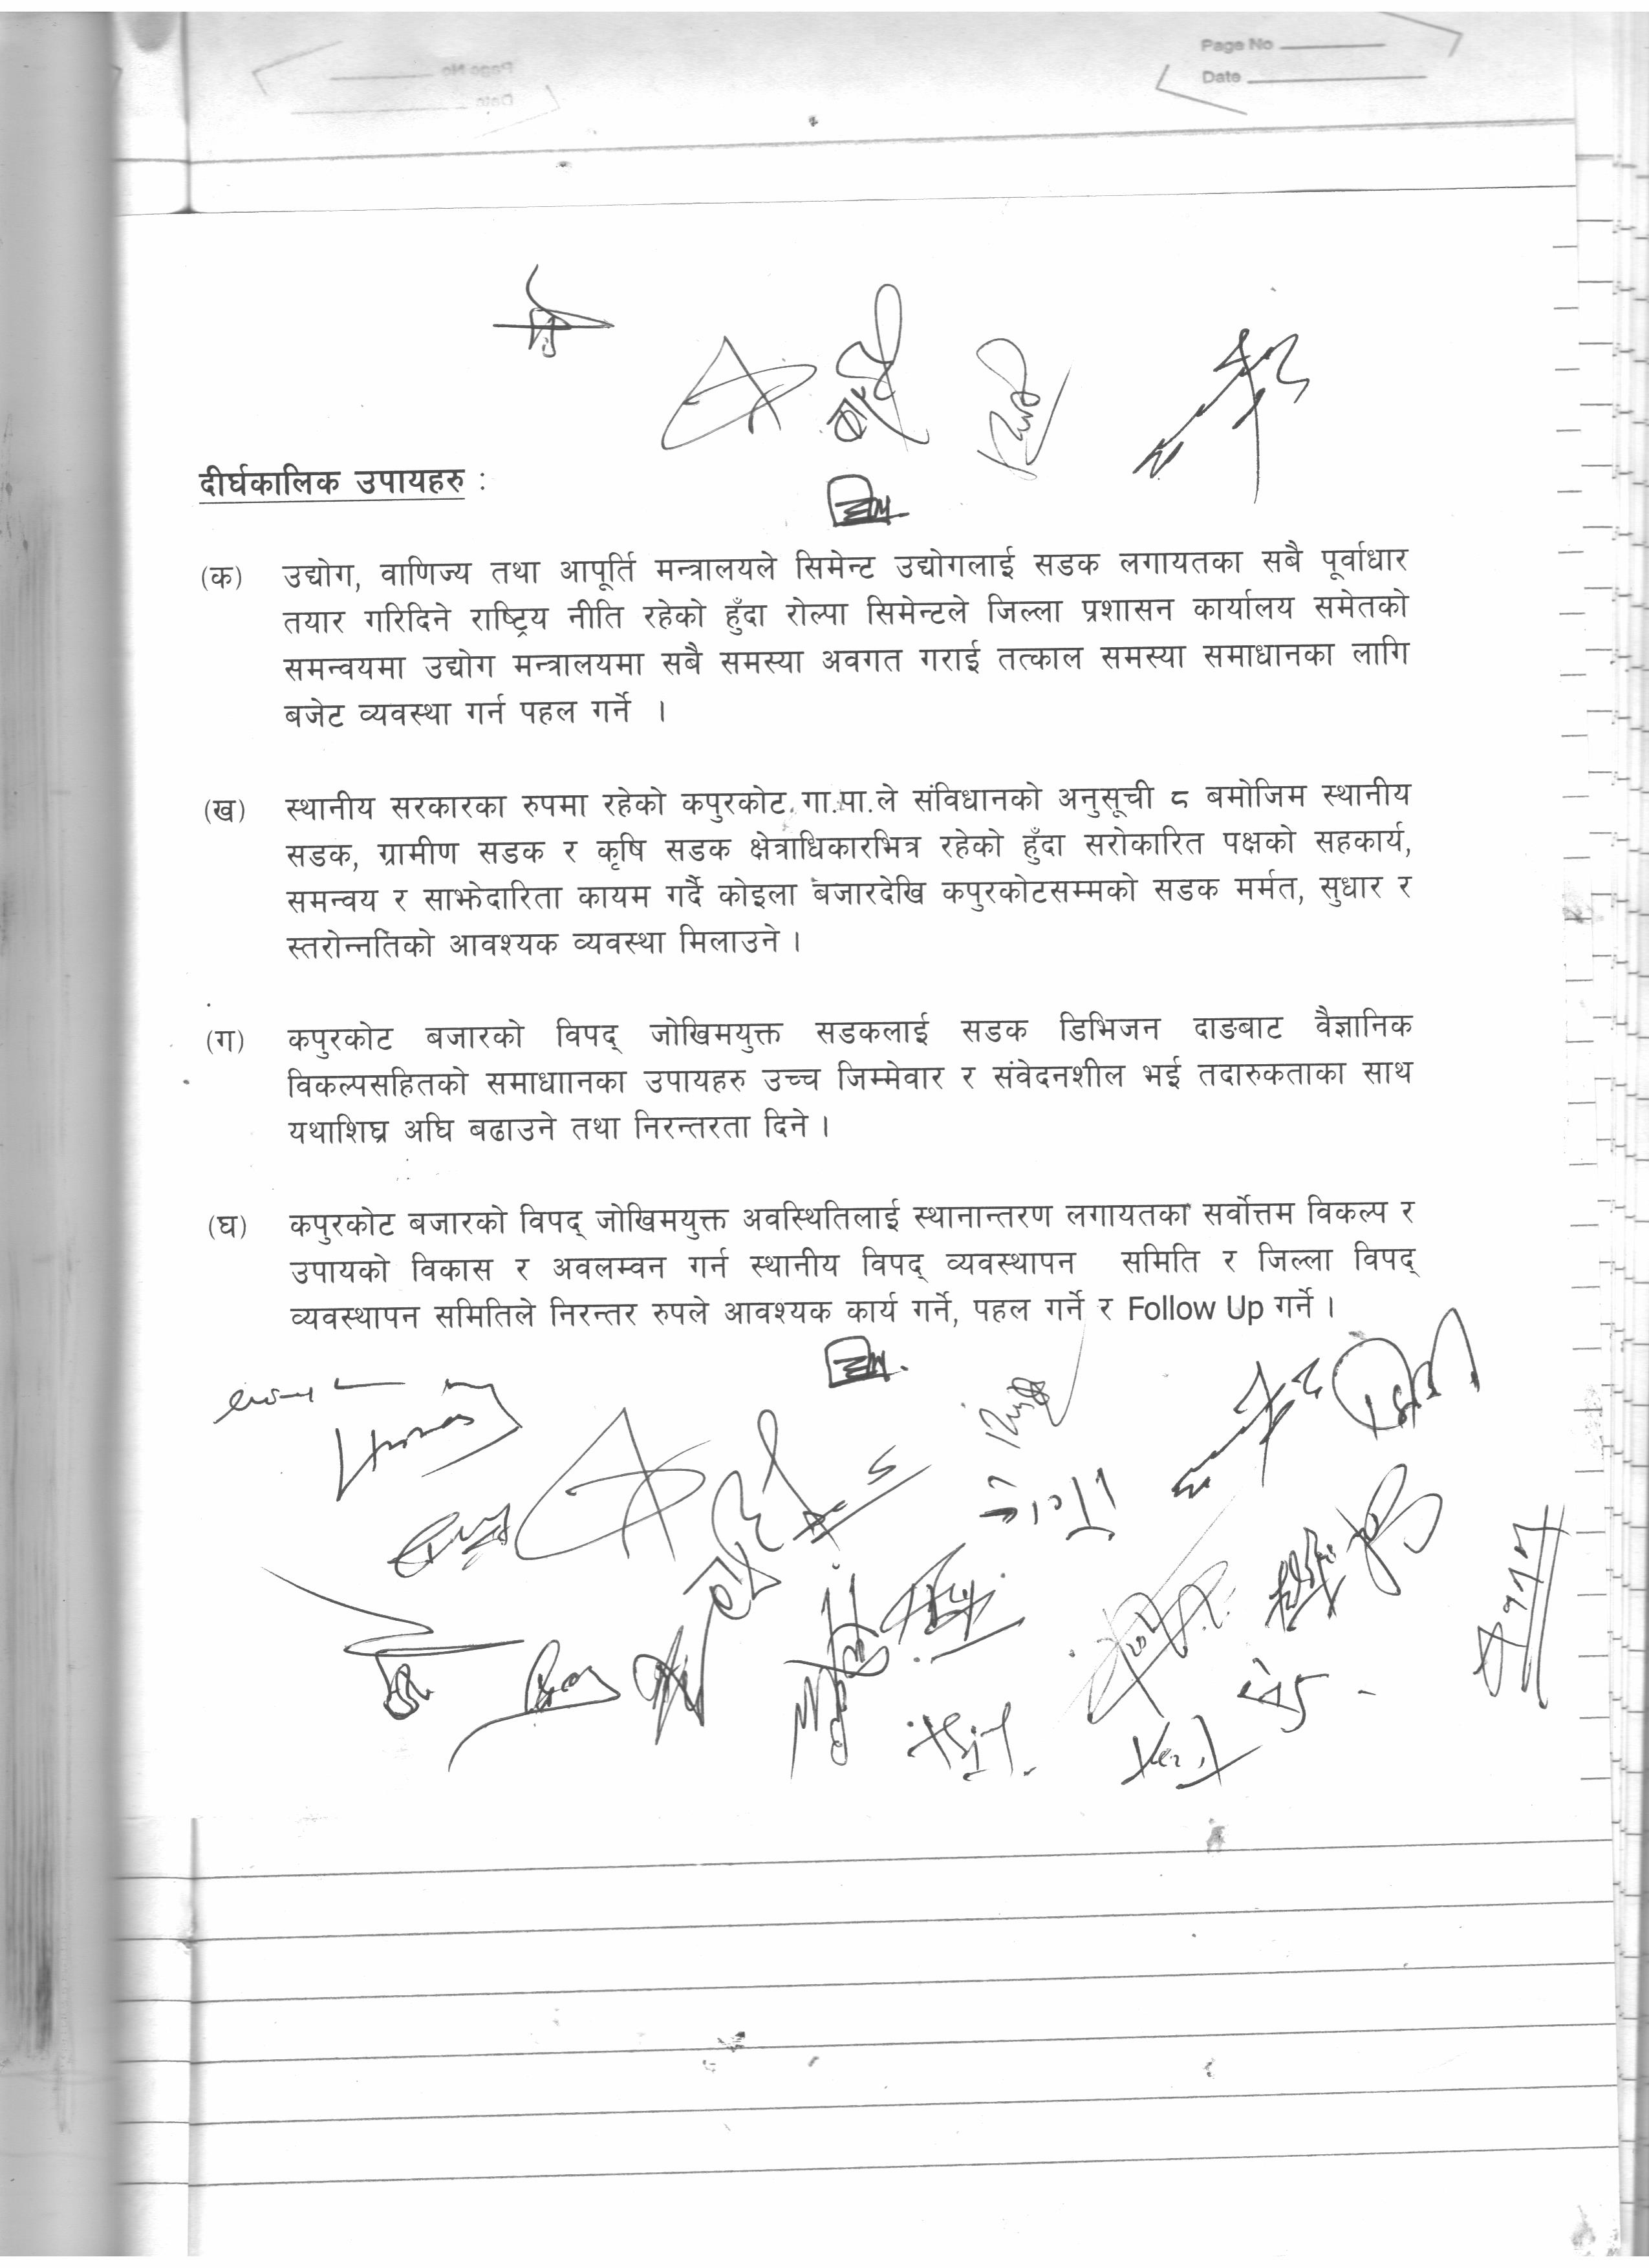 Page No
Date
दीर्घकालिक उपायहरु :
(क) उद्योग, वाणिज्य तथा आपूर्ति मन्त्रालयले सिमेन्ट उद्योगलाई सडक लगायतका सबै पूर्वाधार
तयार गरिदिने राष्ट्रिय नीति रहेको हुँदा रोल्पा सिमेन्टले जिल्ला प्रशासन कार्यालय समेतको
समन्वयमा उद्योग मन्त्रालयमा सबै समस्या अवगत गराई तत्काल समस्या समाधानका लागि
बजेट व्यवस्था गर्न पहल गर्ने ।
(ख) स्थानीय सरकारका रुपमा रहेको कपुरकोट गा.पा.ले संविधानको अनुसूची ८ बमोजिम स्थानीय
सडक, ग्रामीण सडक र कृषि सडक क्षेत्राधिकारभित्र रहेको हुँदा सरोकारित पक्षको सहकार्य,
समन्वय र साझेदारिता कायम गर्दै कोइला बजारदेखि कपुरकोटसम्मको सडक मर्मत, सुधार र
स्तरोन्नतिको आवश्यक व्यवस्था मिलाउने ।
(ग) कपुरकोट बजारको विपद् जोखिमयुक्त सडकलाई सडक डिभिजन दाङबाट वैज्ञानिक
विकल्पसहितको समाधाानका उपायहरु उच्च जिम्मेवार र संवेदनशील भई तदारुकताका साथ
यथाशिघ्र अघि बढाउने तथा निरन्तरता दिने ।
(घ) कपुरकोट बजारको विपद् जोखिमयुक्त अवस्थितिलाई स्थानान्तरण लगायतका सर्वोत्तम विकल्प र
उपायको विकास र अवलम्वन गर्न स्थानीय विपद् व्यवस्थापन समिति र जिल्ला विपद्
व्यवस्थापन समितिले निरन्तर रुपले आवश्यक कार्य गर्ने, पहल गर्ने र Follow Up गर्ने ।